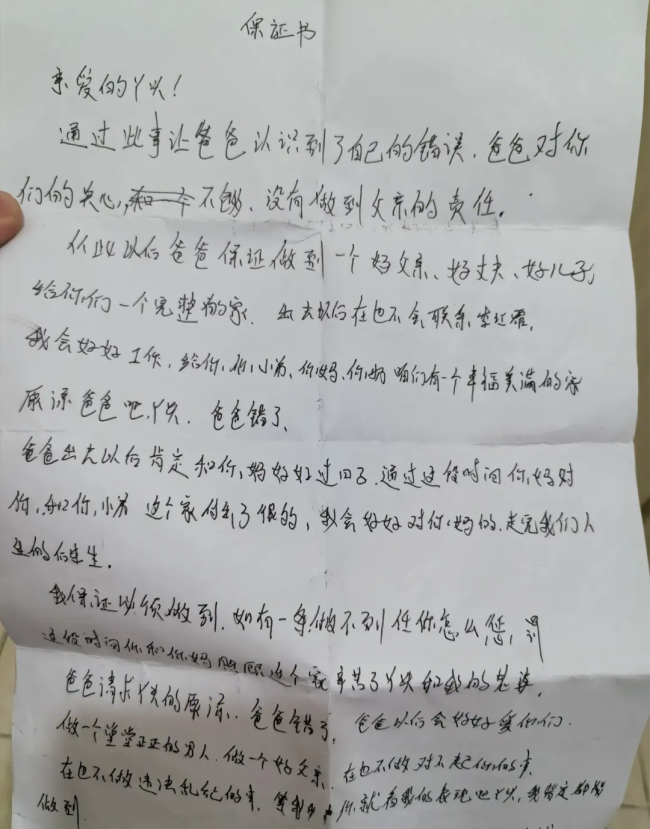 保证书
亲爱的丫头!
通过此事让爸爸认识到了自己的错误.爸爸对你
们的关心,不够、没有做到父亲的责任.
从此以后爸爸保证做到一个好父亲、好丈夫、好儿子,
给你们一个完整的家.出去以后在也不会联系
我会好好工作.给你,和小弟、你妈、你奶咱们有一个幸福美满的家
原谅爸爸吧.丫头.爸爸错了、
爸爸出去以后肯定和你,妈好好过日子.通过这段时间你,妈对
你,和你,小弟这个家付出了很的、我会好好对你,妈的.走完我们人
生的后半生.
我保证必须做到.如有一条做不到任你怎么惩,罚
这段时间你和你妈照顾这个家辛苦了丫头和我的老婆.
爸爸请求丫头的原谅.爸爸错了.爸爸以后会好好爱你们.
做一个堂堂正正的男人.做一个好父亲.在也不做对不起你们的事.
在也不做违法乱纪的事.你,就看我的表现吧丫头,我肯定都能
做到.